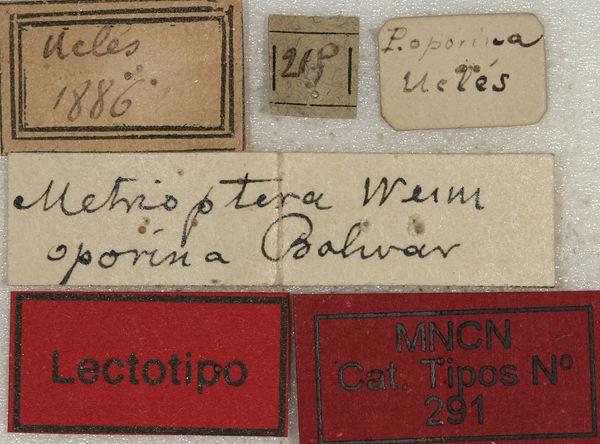 Uclés
1886
P. oporina
Uclés
Metrioptera Wesm
oporina Bolivar
Lectotipo
MNCN
Cat. Tipos Nº
291